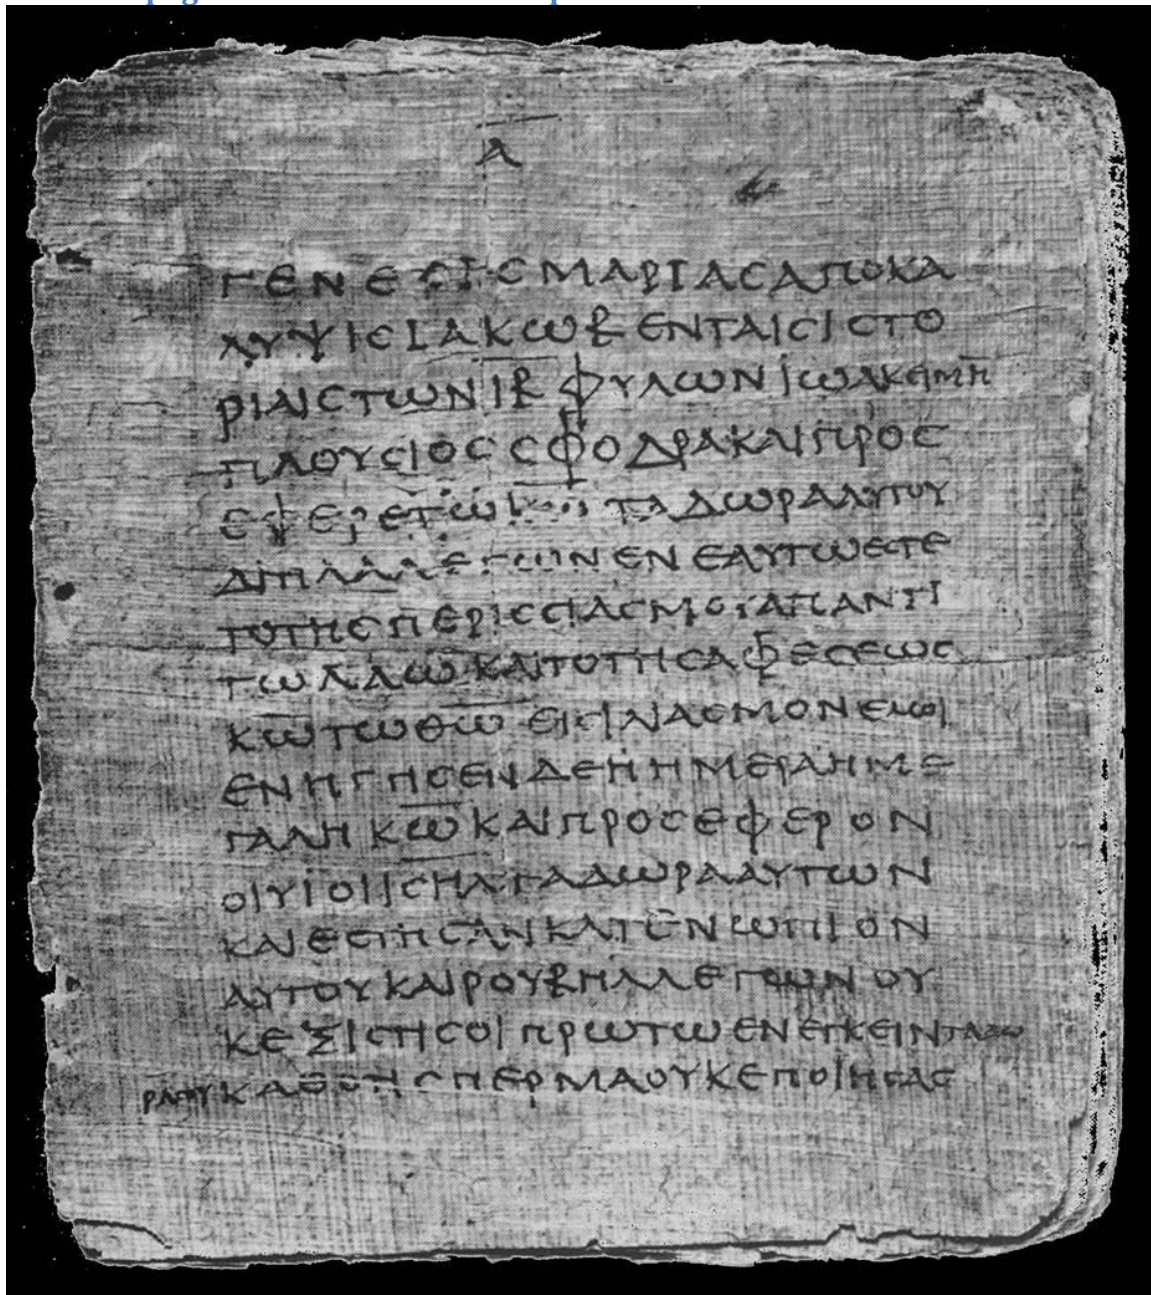 Α
ΓΕΝΕΣΙΣ ΜΑΡΙΑΣ ΑΠΟΚΑ
ΛΥΨΙΣ ΙΑΚΩΒ ΕΝ ΤΑΙΣ ΙΣΤΟ
ΡΙΑΙΣ ΤΩΝ ΙΒ ΦΥΛΩΝ ΙΩΑΚΕΙΜ ΗΝ
ΠΛΟΥΣΙΟΣ ΣΦΟΔΡΑ ΚΑΙ ΠΡΟΣ
ΕΦΕΡΕ ΤΩ ΤΑ ΔΩΡΑ ΑΥΤΟΥ
ΔΙΠΛΑ ΛΕΓΩΝ ΕΝ ΕΑΥΤΩ ΕΣΤΕ
ΤΟ ΤΗΣ ΠΕΡΙΣΣΙΑΣ ΜΟΥ ΑΠΑΝΤΙ
ΤΩ ΛΑΩ ΚΑΙ ΤΟ ΤΗΣ ΑΦΕΣΕΩΣ
ΚΩ ΤΩ ΘΩ ΕΙΣ ΙΛΑΣΜΟΝ ΕΜΟΙ
ΕΝΗΓΓΗΣΕΝ ΔΕ Η ΗΜΕΡΑ Η ΜΕ
ΓΑΛΗ ΚΩ ΚΑΙ ΠΡΟΣΕΦΕΡΟΝ
ΟΙ ΥΙΟΙ ΙΣΗΛ ΤΑ ΔΩΡΑ ΑΥΤΩΝ
ΚΑΙ ΕΣΤΗΣΑΝ ΚΑΤΕΝΩΠΙΟΝ
ΑΥΤΟΥ ΚΑΙ ΡΟΥΒΗΛ ΛΕΓΩΝ ΟΥ
Κ ΕΞΙΣΤΗ ΣΟΙ ΠΡΩΤΩ ΕΝΕΓΚΕΙΝ ΤΑ ΔΩ
ΡΑ ΣΟΥ ΚΑΘΟΤΗ ΣΠΕΡΜΑ ΟΥΚ ΕΠΟΙΗΣΑΣ